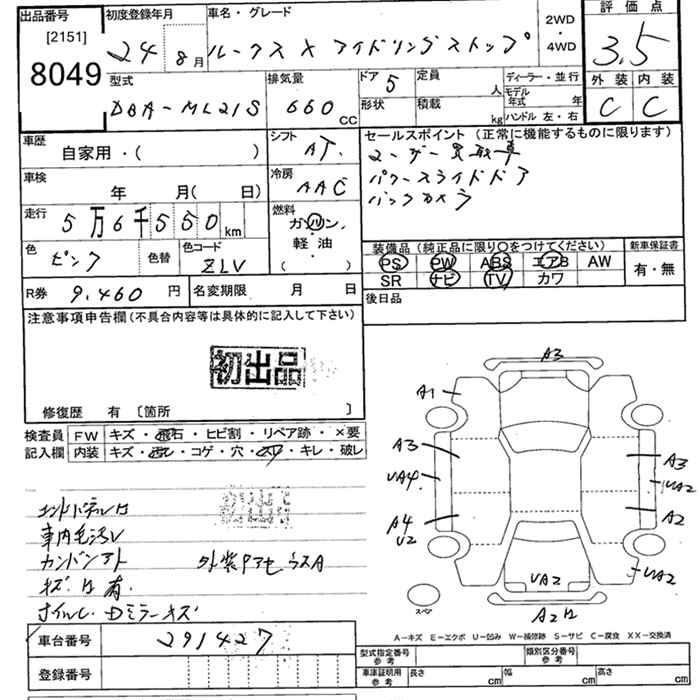 出品番号
[2151]
8049
初度登録年月
24 8月
車名・グレード
ルークス X アイドリングストップ
2WD
・
4WD
評価点
3.5
外装 内装
C C
型式
DBA-ML21S
排気量
660 CC
ドア 5
形状
定員 人
積載 kg
ディーラー・並行
モデル年式 年
ハンドル 左・右
車歴
自家用・( )
シフト
AT.
車検
年 月( 日)
冷房
AAC
走行
5万6千550km
燃料
ガソリン・
軽油・
( )
色
ピンク
色替
色コード
ZLV
セールスポイント (正常に機能するものに限ります)
ユーザー買取車
パワースライドドア
バックカメラ
装備品 (純正品に限り○をつけてください)
PS PW ABS エアB AW
SR ナビ TV カワ
新車保証書
有・無
R券 9,460円
名変期限 月 日
後日品
注意事項申告欄(不具合内容等は具体的に記入して下さい)
初出品
修復歴 有 [箇所 ]
検査員
記入欄
FW キズ・飛石・ヒビ割・リペア跡・×要
内装 キズ・汚レ・コゲ・穴・スレ・キレ・破レ
初出品
エンドパネルU
車内毛汚レ
カンバンアト
外装Pアセ ラスA
キズU有
ホイル・Dミラーキズ
車台番号
291427
登録番号
A3
A1
A3
UA4
A4
U2
A3
UA2
A2
UA2
UA2
A2U
スペア
A-キズ E-エクボ U-凹み W-補修跡 S-サビ C-腐食 XX-交換済
型式指定番号
参考
類別区分番号
参考
車庫証明用
参考
長さ cm
幅 cm
高さ cm